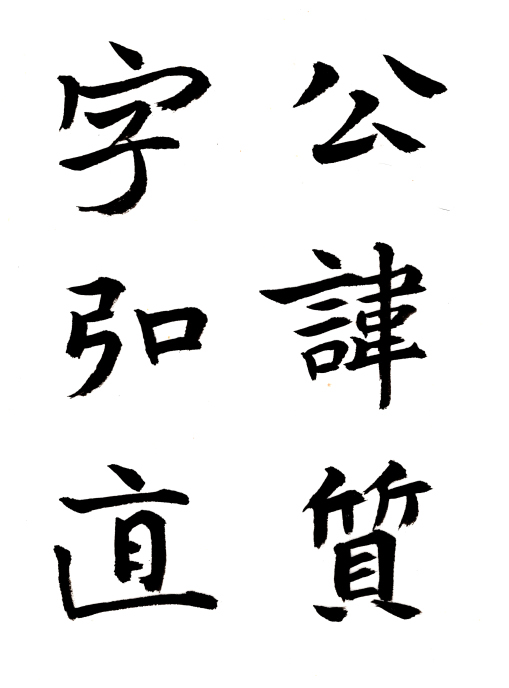 公諱質
字弘直